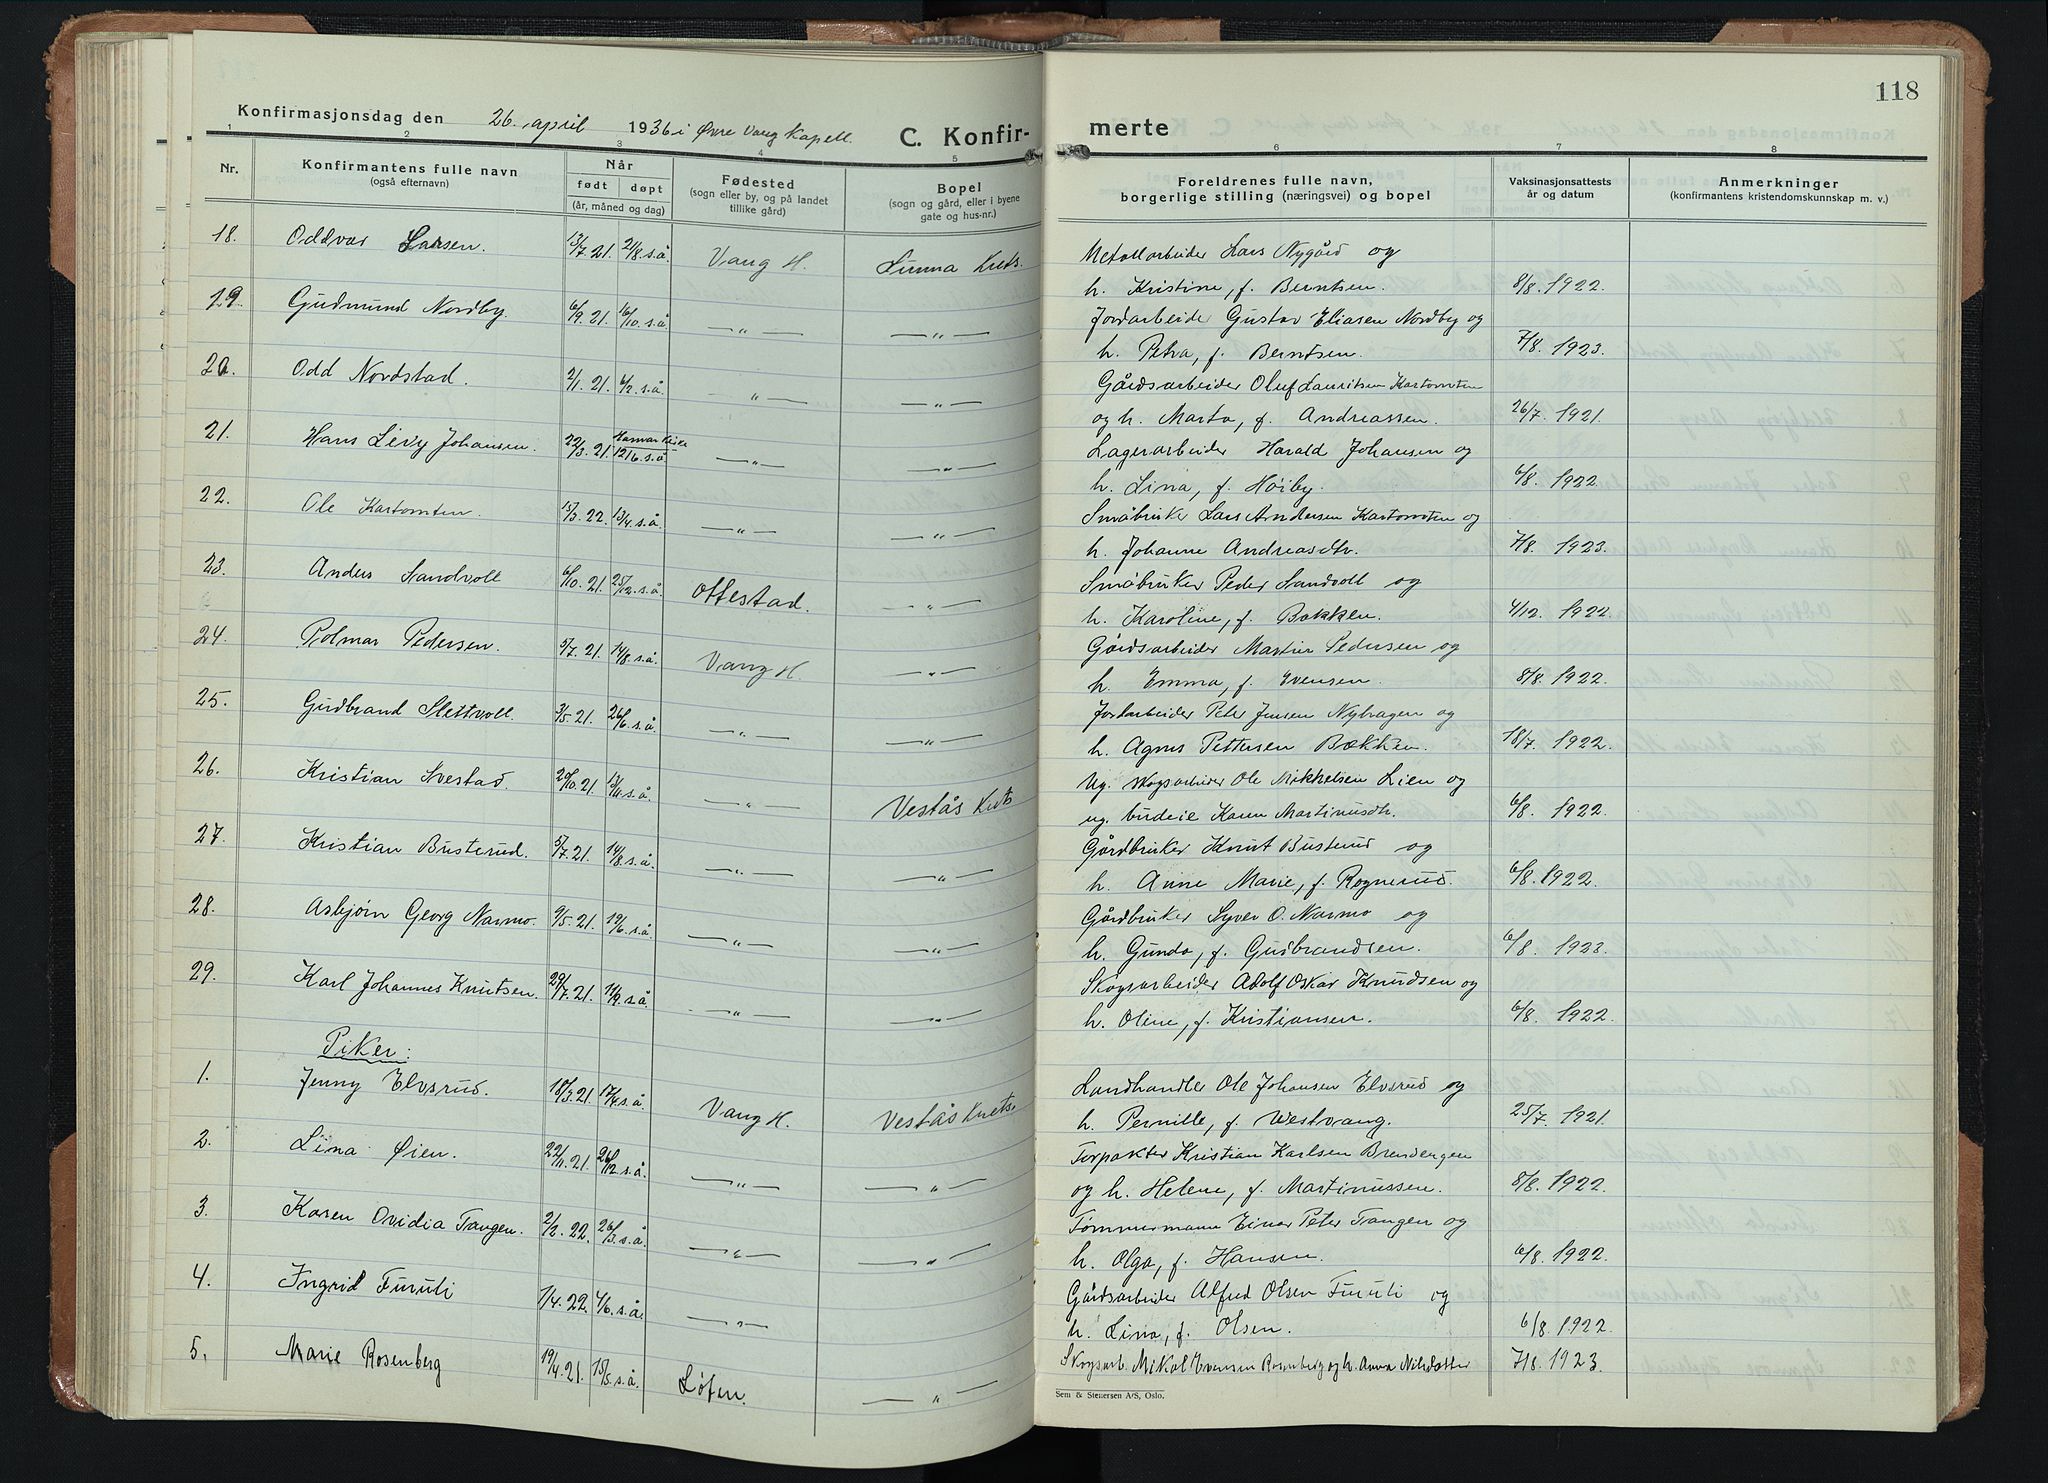 118
Konfirmasjonsdag den 26. april 1936 i Øvre Vang Kapell. C. Konfir- merte
1 2 3 4 5 6 7 8
Nr. Konfirmantens fulle navn (også efternavn) Når født døpt (år, måned og dag) Fødested (sogn eller by, og på landet tillike gård) Bopel (sogn og gård, eller i byene gate og hus-nr.) Foreldrenes fulle navn, borgerlige stilling (næringsvei) og bopel Vaksinasjonsattests år og datum Anmerkninger (konfirmantens kristendomskunnskap m. v.)
18. Oddvar Larsen. 13/7. 21. 21/8. s.å. Vang H. Linna Krets. Metallarbeider Lars Nygård og
h. Kristine, f. Berntsen. 8/8. 1922.
19. Gudmund Nordby. 6/9. 21. 16/10. s.å. —"— —"— Jordarbeider Gustav Eliasen Nordby og
h. Petra, f. Berntsen. 7/8. 1923.
20. Odd Nordstad. 2/1. 21. 6/2. s.å. —"— —"— Gårdsarbeider Oluf Lauritsen Kartomten
og h. Marta, f. Andreassen. 26/7. 1921.
21. Hans Levy Johansen. 22/3. 21. 12/6. s.å. —"— —"— Lagerarbeider Harald Johansen og
h. Lina, f. Høiby. 6/8. 1922.
22. Ole Kartomten. 15/3. 22. 13/4. s.å. —"— —"— Småbruker Lars Andersen Kartomten og
h. Johanne Andreasdtr. 7/8. 1923.
23. Anders Sandvoll 6/10. 21. 25/12. s.å. Ottestad. —"— Småbruker Peder Sandvoll og
h. Karoline, f. Bakken. 4/12. 1922.
24. Polmar Pedersen. 5/7. 21. 14/8. s.å. Vang H. —"— Gårdsarbeider Martin Pedersen og
h. Emma, f. Evensen. 8/8. 1922.
25. Gudbrand Slettvoll. 3/5. 21. 26/6. s.å. —"— —"— Jordarbeider Peter Jensen Nyhagen og
h. Agnes Pettersen Bækken. 18/7. 1922.
26. Kristian Svestad. 20/10. 21. 13/11. s.å. —"— Vestås Krets Ug. skogsarbeider Ole Mikkelsen Lien og
ug. budeie Karen Martinusdtr. 6/8. 1922.
27. Kristian Busterud. 5/7. 21. 14/8. s.å. —"— —"— Gårdbruker Knut Busterud og
h. Anne Marie, f. Rognerud. 6/8. 1922.
28. Asbjørn Georg Narmo. 9/5. 21. 19/6. s.å. —"— —"— Gårdbruker Syver O. Narmo og
h. Gunda, f. Gudbrandsen. 6/8. 1923.
29. Karl Johannes Knutsen. 29/7. 21. 11/9. s.å. —"— —"— Skogsarbeider Adolf Oskar Knudsen og
h. Oline, f. Kristiansen. 6/8. 1922.
Piker:
1. Jenny Elvsrud. 18/3. 21. 17/4. s.å. Vang H. Vestås Krets. Landhandler Ole Johansen Elvsrud og
h. Pernille, f. Westvang. 25/7. 1921.
2. Lina Øien. 22/11. 21. 26/12. s.å. —"— —"— Forpakter Kristian Karlsen Brendengen
og h. Helene, f. Martinussen. 8/8. 1922.
3. Karen Ovidia Tangen. 2/2. 22. 26/3. s.å. —"— —"— Tømmermann Einar Peter Tangen og
h. Olga, f. Hansen. 6/8. 1922.
4. Ingrid Furuli 1/4. 22. 4/6. s.å. —"— Gårdsarbeider Alfred Olsen Furuli og
h. Lina, f. Olsen. 6/8. 1922.
5. Marie Rosenberg 19/4. 21. 15/8. s.å. Løten. —"— Skogsarb. Mikal Evensen Rosenberg og h. Anna Nilsdatter 7/8. 1923.
Sem & Stenersen A/S, Oslo.